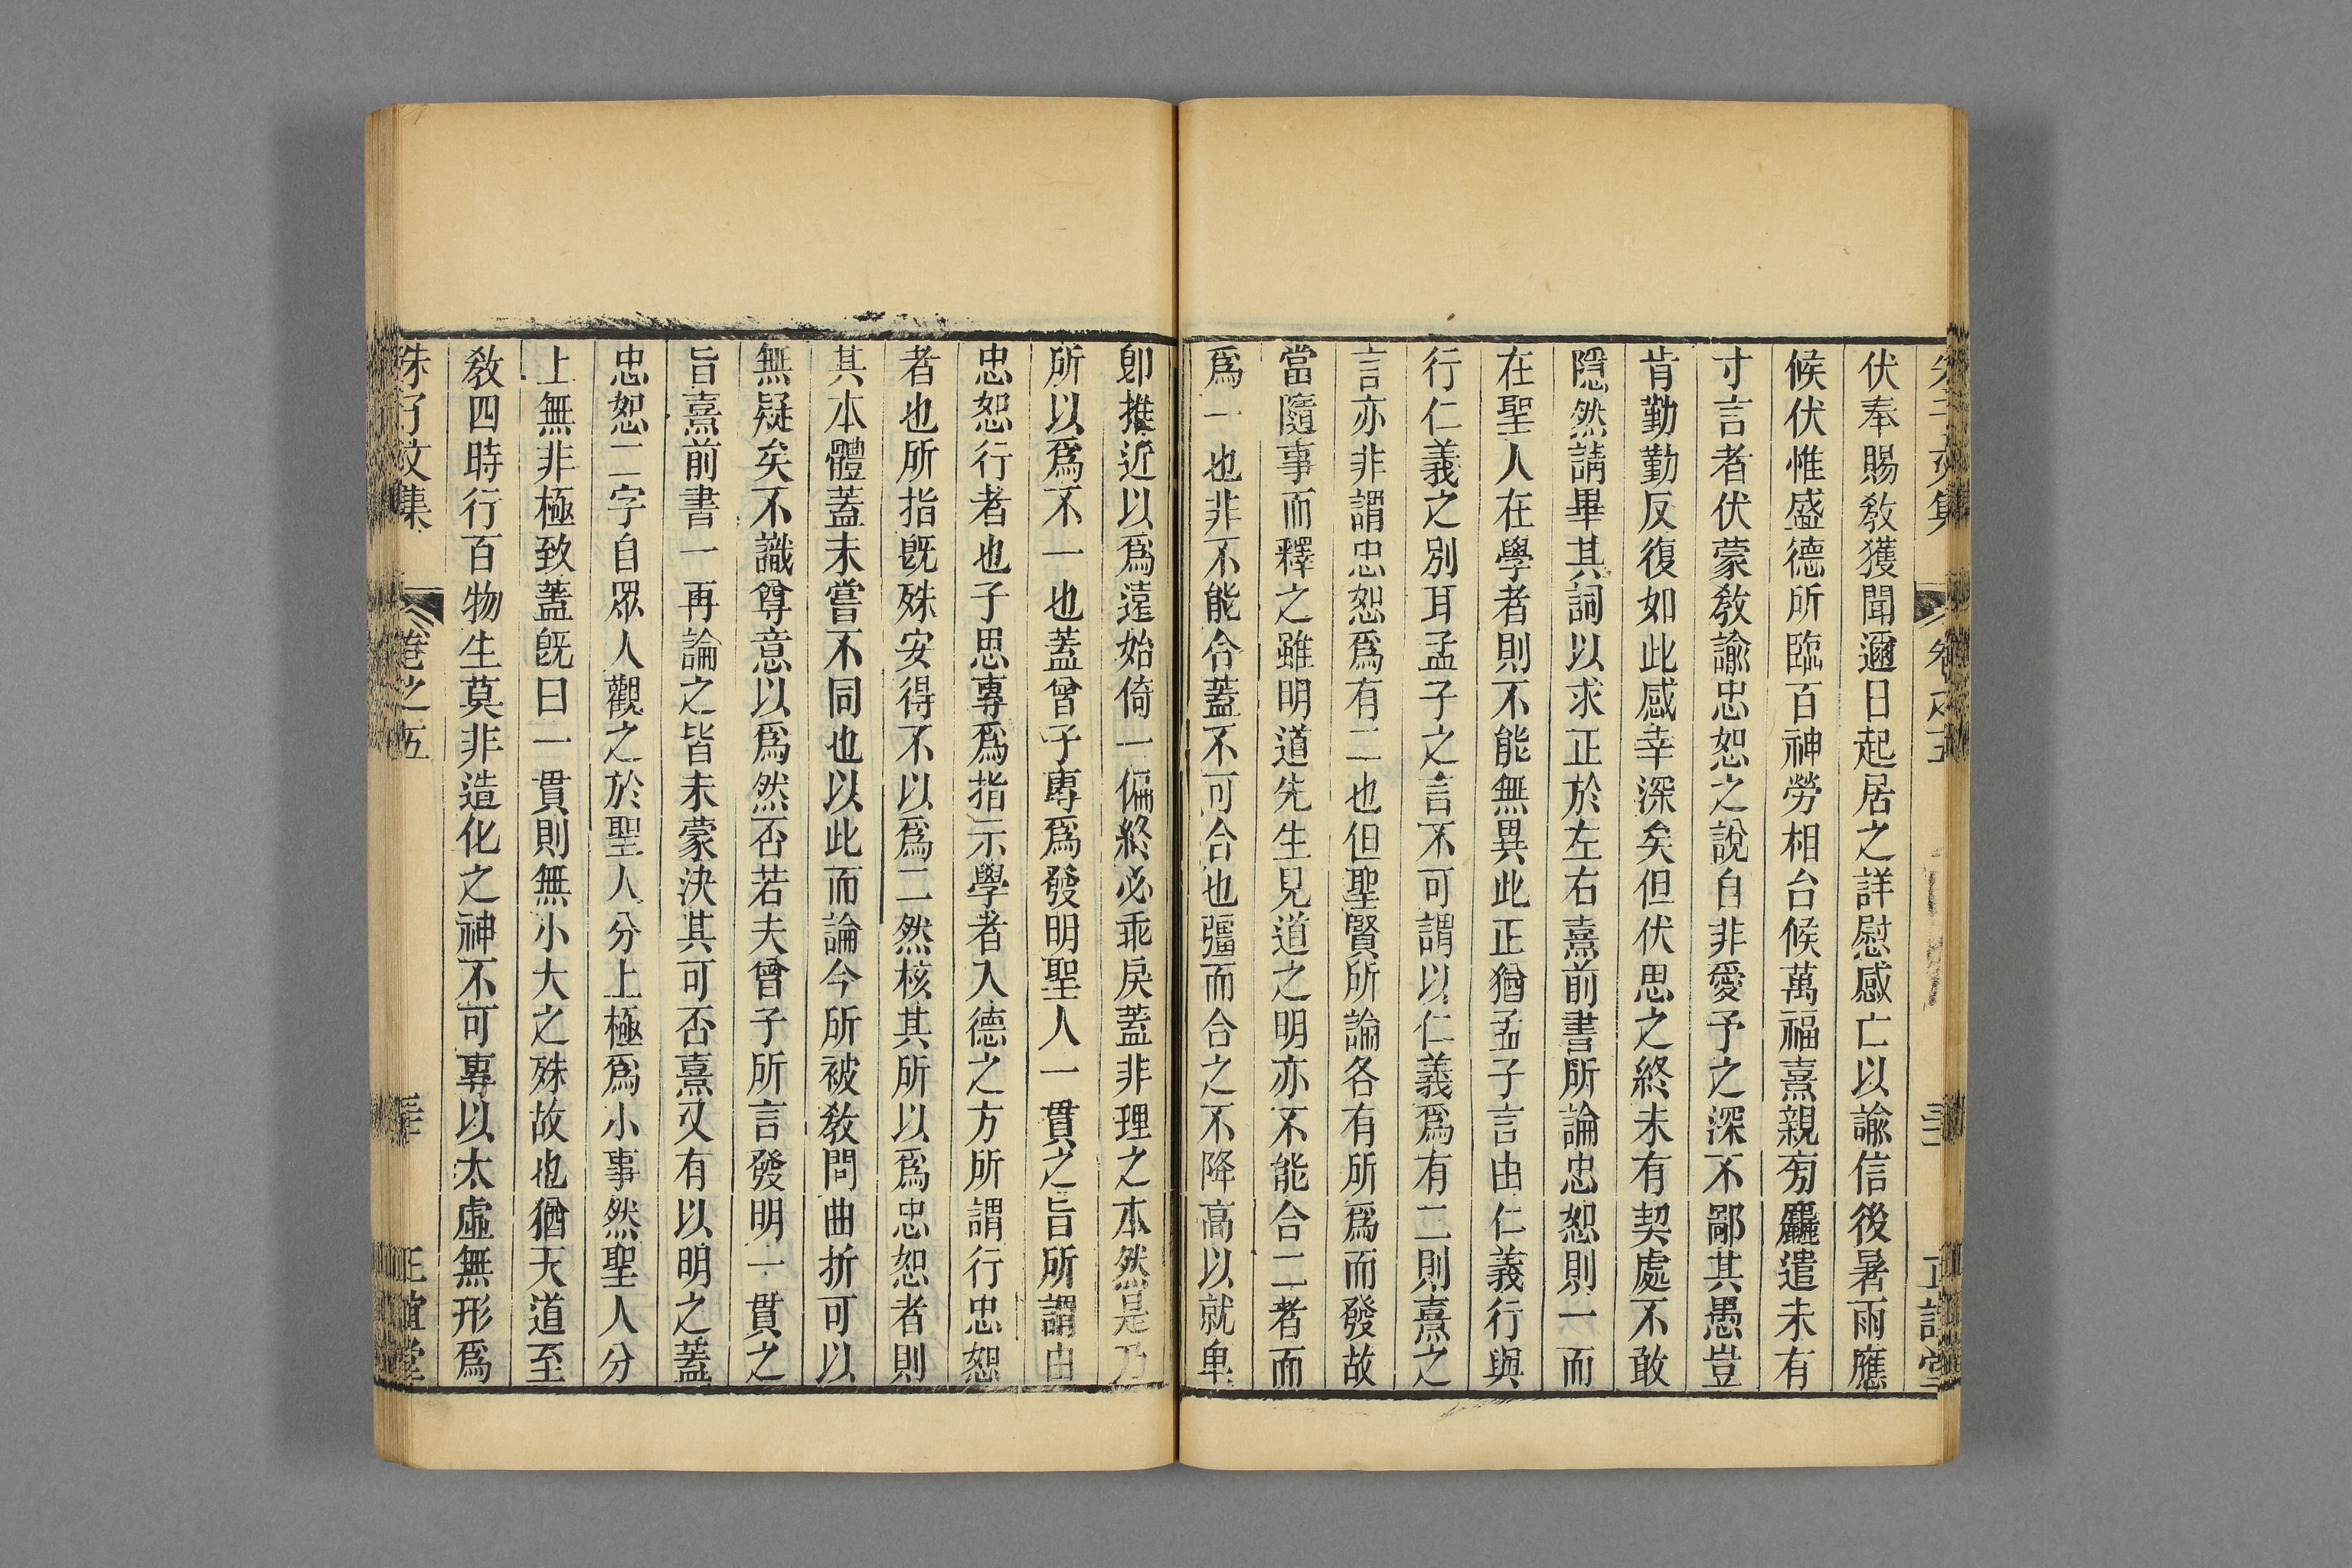 伏奉賜敎獲聞邇日起居之詳慰感亡以諭信後暑雨應
候伏惟盛德所臨百神勞相台候萬福熹親旁麤遣未有
寸言者伏蒙敎諭忠恕之說自非愛予之深不鄙其愚豈
肯勤勤反復如此感幸深矣但伏思之終未有契處不敢
隱然請畢其詞以求正於左右熹前書所論忠恕則一而
在聖人在學者則不能無異此正猶孟子言由仁義行與
行仁義之別耳孟子之言不可謂以仁義爲有二則熹之
言亦非謂忠恕爲有二也但聖賢所論各有所爲而發故
當隨事而釋之雖明道先生見道之明亦不能合二者而
爲一也非不能合蓋不可合也彊而合之不降高以就卑
卽推近以爲遠始倚一偏終必乖戾蓋非理之本然是乃
所以爲不一也蓋曾子專爲發明聖人一貫之旨所謂由
忠恕行者也子思專爲指示學者入德之方所謂行忠恕
者也所指旣殊安得不以爲二然核其所以爲忠恕者則
其本體蓋未嘗不同也以此而論今所被敎問曲折可以
無疑矣不識尊意以爲然否若夫曾子所言發明一貫之
旨熹前書一再論之皆未蒙決其可否熹又有以明之蓋
忠恕二字自眾人觀之於聖人分上極爲小事然聖人分
上無非極致蓋旣曰一貫則無小大之殊故也猶天道至
敎四時行百物生莫非造化之神不可專以太虛無形爲
朱子文集 卷之五 正誼堂